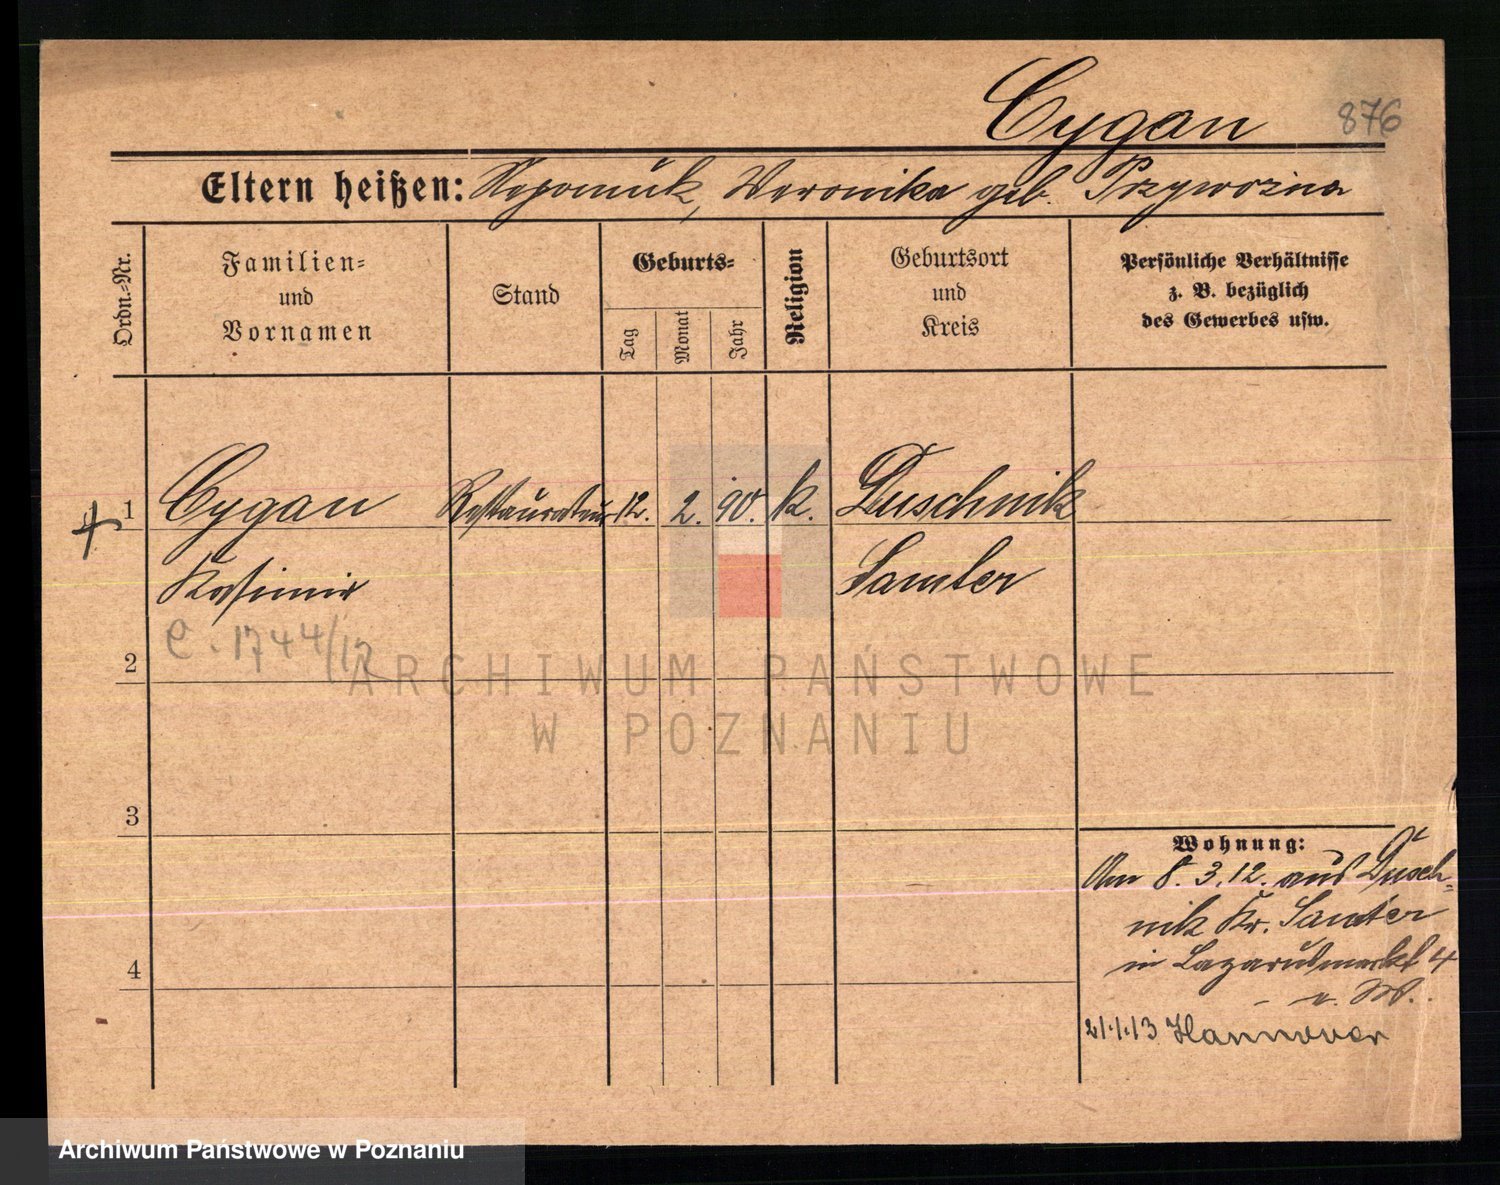 Cygan 876
Eltern heißen: Nepomuk, Veronika geb. Przywozna
Ordn.-Nr.
Familien-
und
Vornamen
Stand
Geburts-
Tag
Monat
Jahr
Religion
Geburtsort
und
Kreis
Persönliche Verhältnisse
z. B. bezüglich
des Gewerbes usw.
1 Cygan Restaurateur 12. 2. 90. k. Duschnik
Kasimir Samter
C. 1744/12
2
3
4
Wohnung:
Am 8.3.12. aus Dusch-
nik Kr. Samter
in Lazarusmarkt 4
21.1.13 Hannover
ARCHIWUM PAŃSTWOWE
W POZNANIU
Archiwum Państwowe w Poznaniu